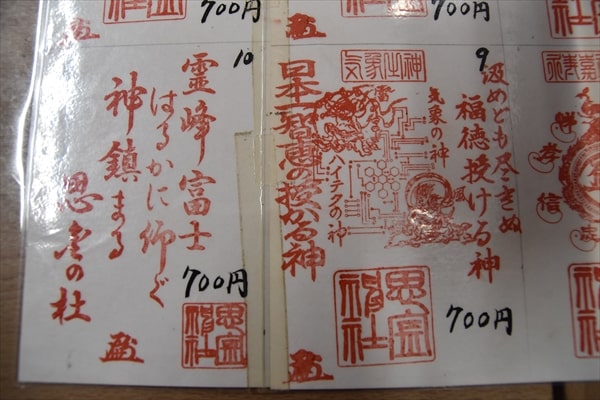 700円
700円
10
霊峰富士
はるかに仰ぐ
神鎮まる
思金の杜
700円
思金神社
9
気象之神
汲めども尽きぬ
福徳授ける神
気象の神
ハイテクの神
日本一智恵の授かる神
思金神社
700円
孝
信